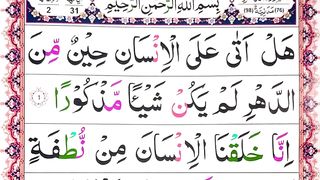 بِسْمِ اللّٰهِ الرَّحْمٰنِ الرَّحِيْمِ
هَلْ اَتٰى عَلَى الْاِنْسَانِ حِيْنٌ مِّنَ
الدَّهْرِ لَمْ يَكُنْ شَيْـًٔا مَّذْكُوْرًا ۝١
اِنَّا خَلَقْنَا الْاِنْسَانَ مِنْ نُّطْفَةٍ